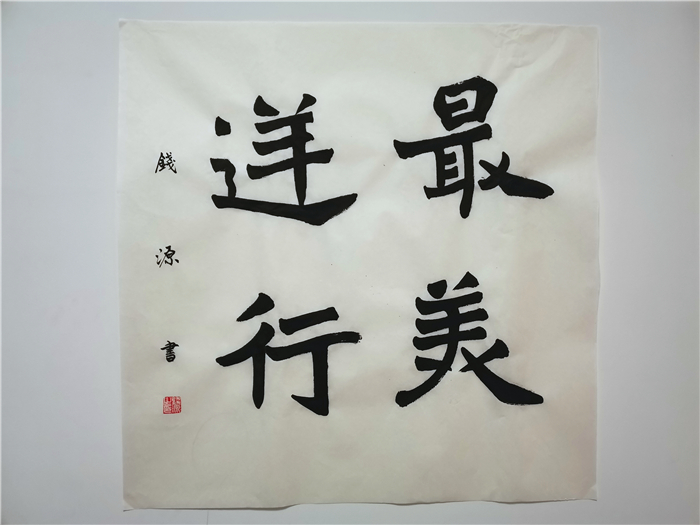 最美
逆行
錢源書